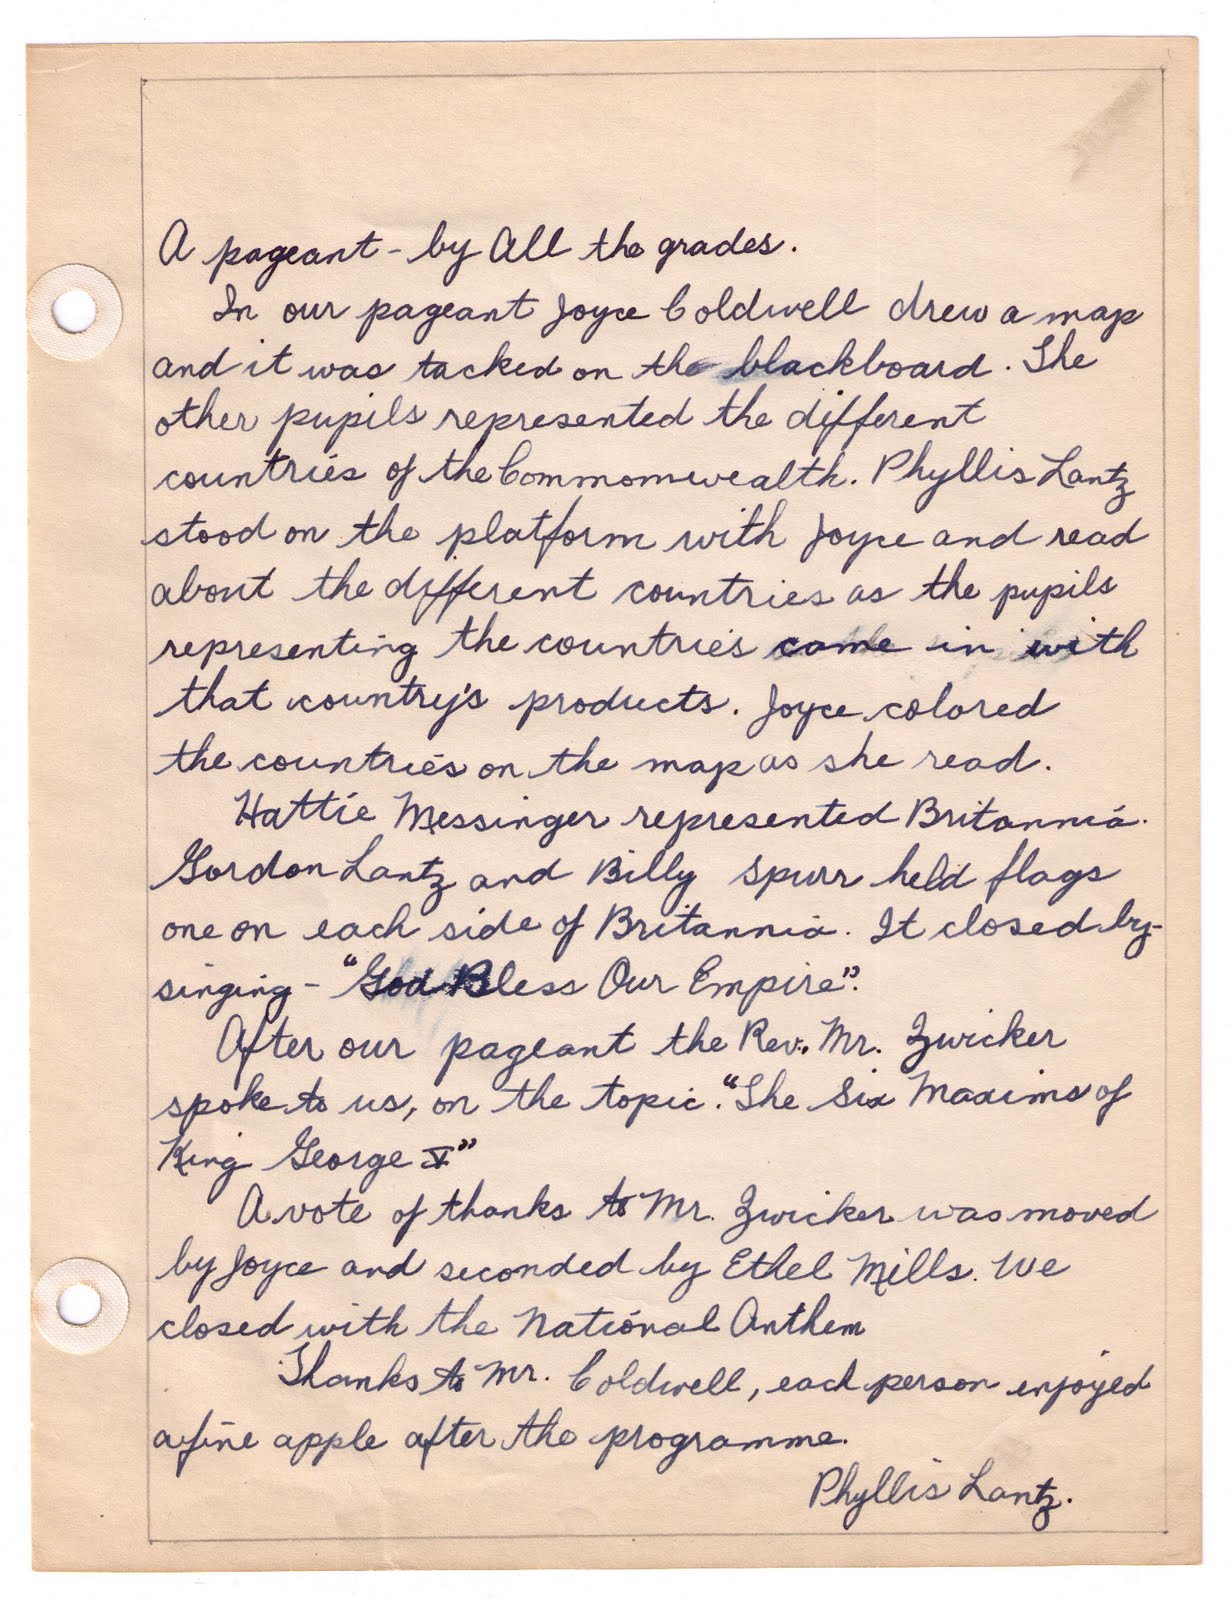 A pageant - by All the grades.
In our pageant Joyce Coldwell drew a map
and it was tacked on the blackboard. The
other pupils represented the different
countries of the Commomwealth. Phyllis Lantz
stood on the platform with Joyce and read
about the different countries as the pupils
representing the countries came in with
that country's products. Joyce colored
the countries on the map as she read.
Hattie Messinger represented Britannia.
Gordon Lantz and Billy Spurr held flags
one on each side of Britannia. It closed by-
singing - "God Bless Our Empire".
After our pageant the Rev. Mr. Zwicker
spoke to us, on the topic. "The Six Maxims of
King George V"
A vote of thanks to Mr. Zwicker was moved
by Joyce and seconded by Ethel Mills. We
closed with the National Anthem
Thanks to Mr. Coldwell, each person enjoyed
a fine apple after the programme.
Phyllis Lantz.